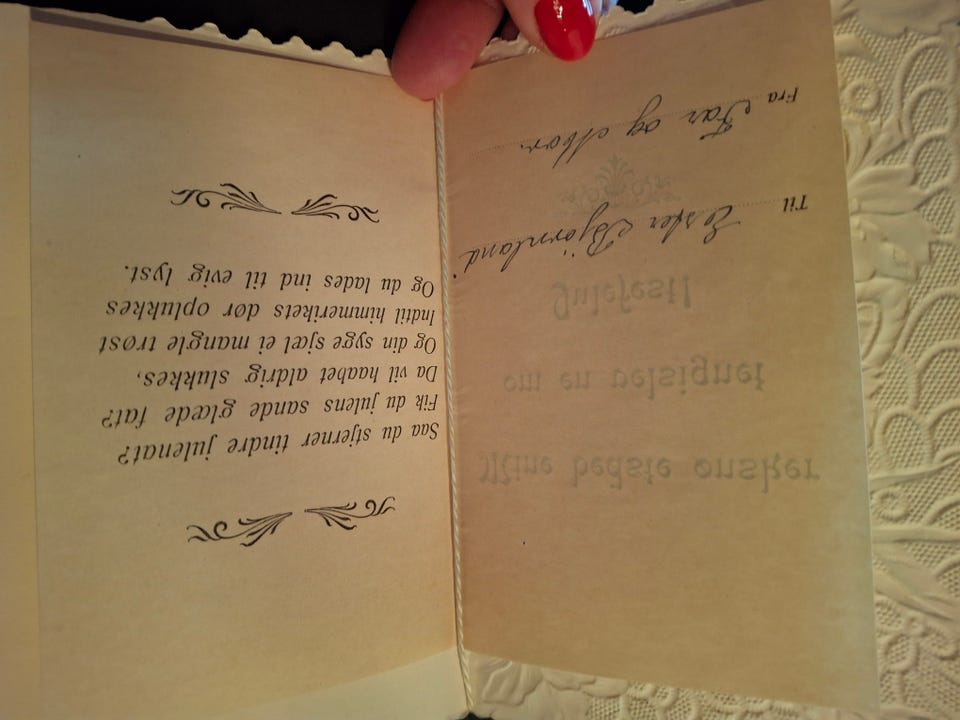 Mine bedste ønsker
om en velsignet
Julefest!
Til Ester Bjørnland.
Fra Far og Mor.
Saa du stjerner tindre julenat?
Fik du julens sande glæde fat?
Da vil haabet aldrig slukkes,
Og din syge sjæl ei mangle trøst
Indtil himmerikets dør oplukkes
Og du lades ind til evig lyst.